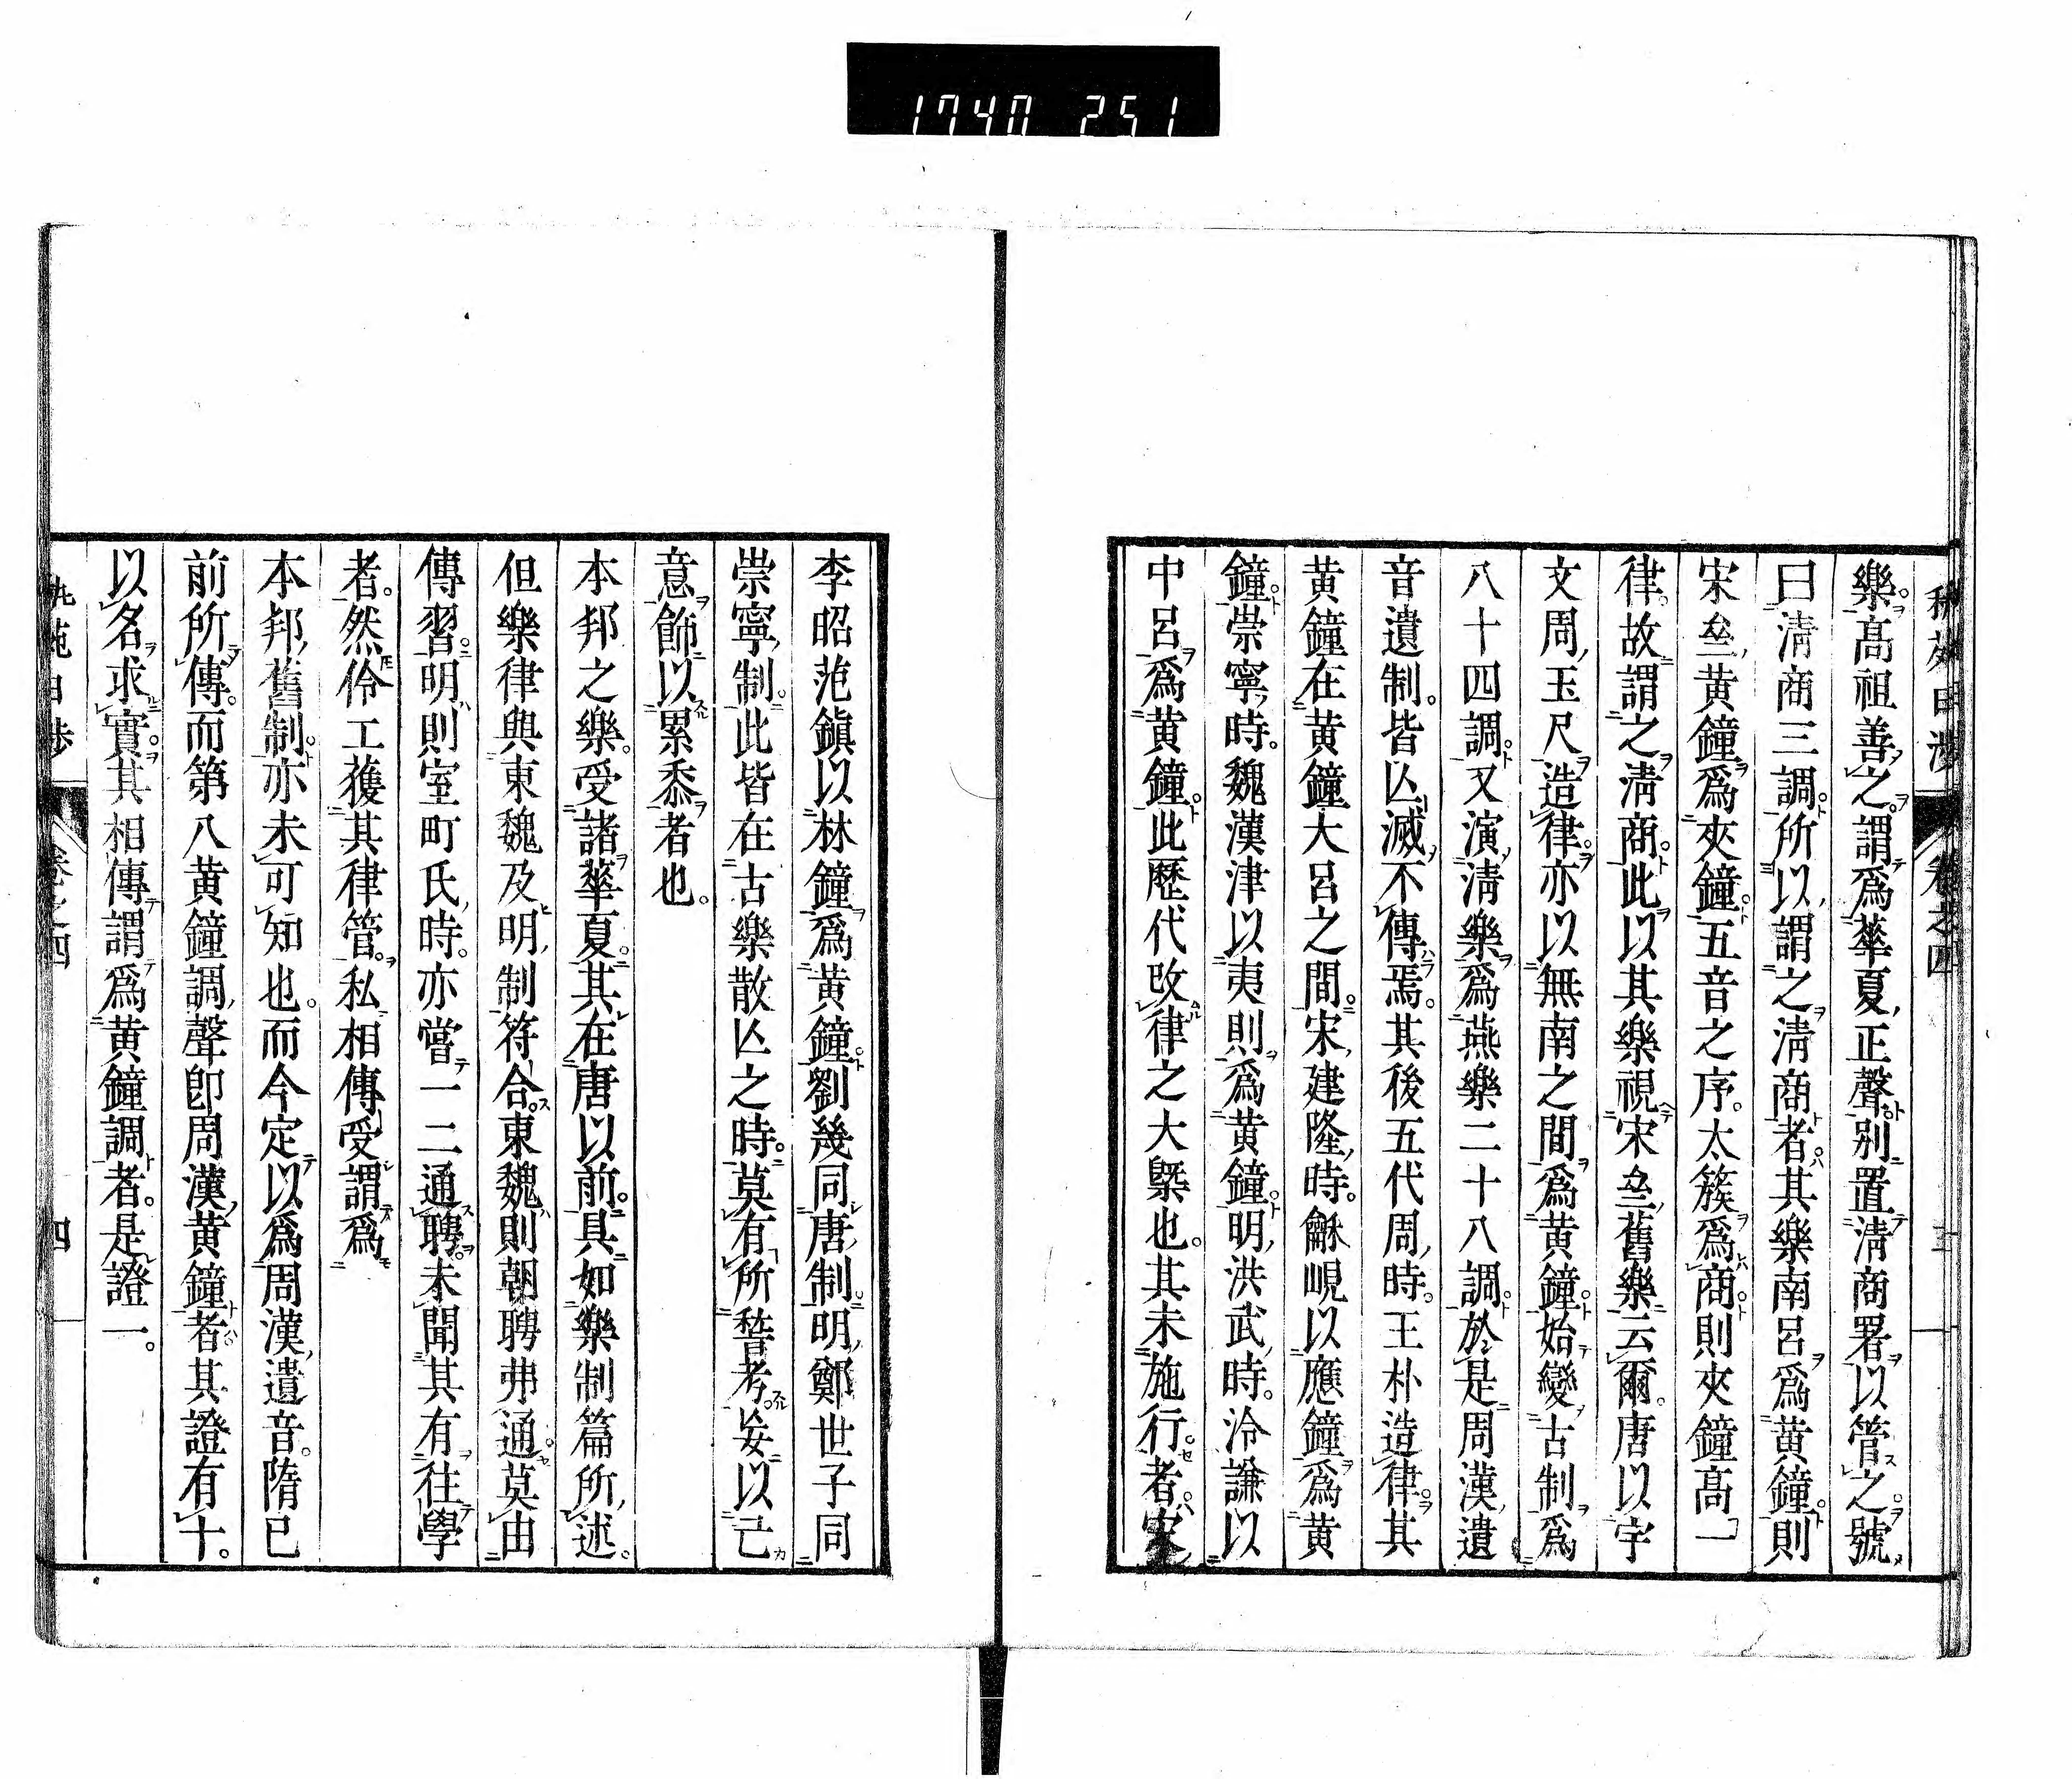 1740 251
樂高祖善之謂爲華夏正聲别置淸商署以管之號
曰淸商三調所以謂之淸商者其樂南呂爲黄鐘則
宋㕘黄鐘爲夾鐘五音之序太簇爲商則夾鐘高一
律故謂之淸商此以其樂視宋㕘舊樂云爾唐以宇
文周玉尺造律亦以無南之間爲黄鐘始變古制爲
八十四調又演淸樂爲燕樂二十八調於是周漢遺
音遺制皆亾滅不傳焉其後五代周時王朴造律其
黄鐘在黄鐘大呂之間宋建隆時龢峴以應鐘爲黄
鐘崇寧時魏漢津以夷則爲黄鐘明洪武時泠謙以
中呂爲黄鐘此歷代改律之大槩也其未施行者宋
李昭范鎭以林鐘爲黄鐘劉幾同唐制明鄭世子同
崇寧制此皆在古樂散亾之時莫有所稽考妄以己
意飾以累黍者也
本邦之樂受諸華夏其在唐以前具如樂制篇所述
但樂律與東魏及明制符合東魏則朝聘弗通莫由
傳習明則室町氏時亦嘗一二通聘未聞其有往學
者然伶工獲其律管私相傳受謂爲
本邦舊制亦未可知也而今定以爲周漢遺音隋已
前所傳而第八黄鐘調聲卽周漢黄鐘者其證有十
以名求實其相傳謂爲黄鐘調者是證一
卷之四
四